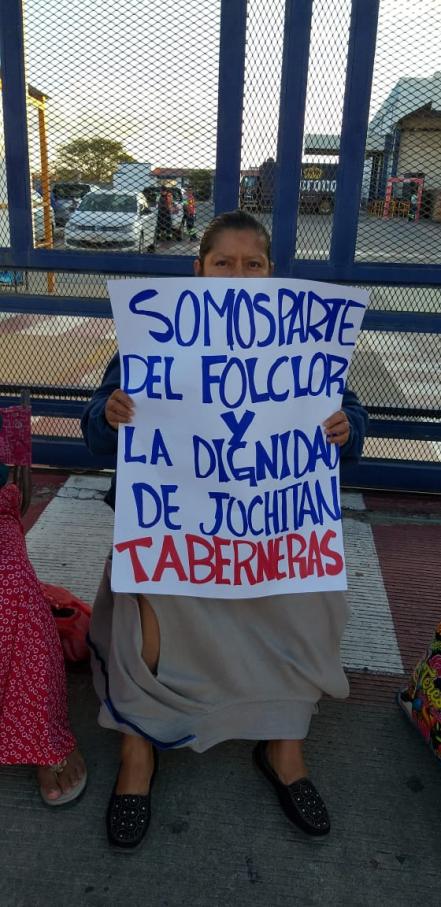 SOMOS PARTE
DEL FOLCLOR
Y
LA DIGNIDAD
DE JUCHITAN
TABERNERAS